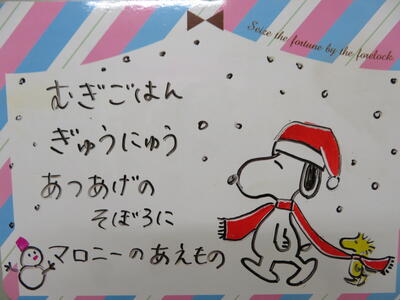 Seize the fortune by the forelock.
むぎごはん
ぎゅうにゅう
あつあげの
そぼろに
マロニーのあえもの